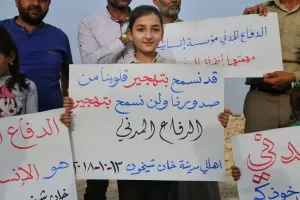 الدفاع المدني مؤسسة إنسانية
مهمتها إنقاذ
قد نسمح بتهجير قلوبنا من
صدورنا ولن نسمح بتهجير
الدفاع المدني
اهالي مدينة خان شيخون ١٣-١٠-٢٠١٨
الدفاع
هو الإنسا
خان شيخون
دفي